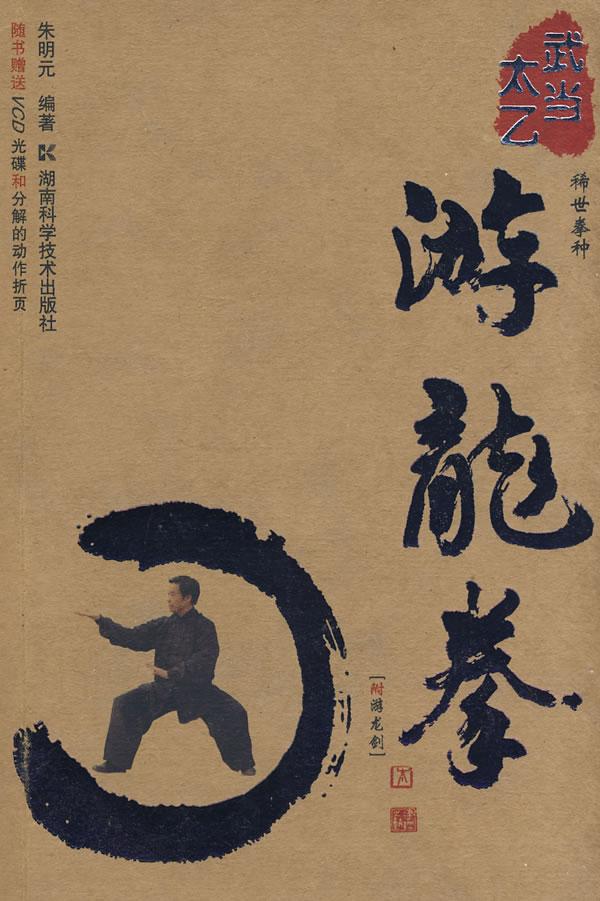 武当
太乙
稀世拳种
游龍拳
[附游龙剑]
朱明元 编著 湖南科学技术出版社
随书赠送VCD光碟和分解的动作折页